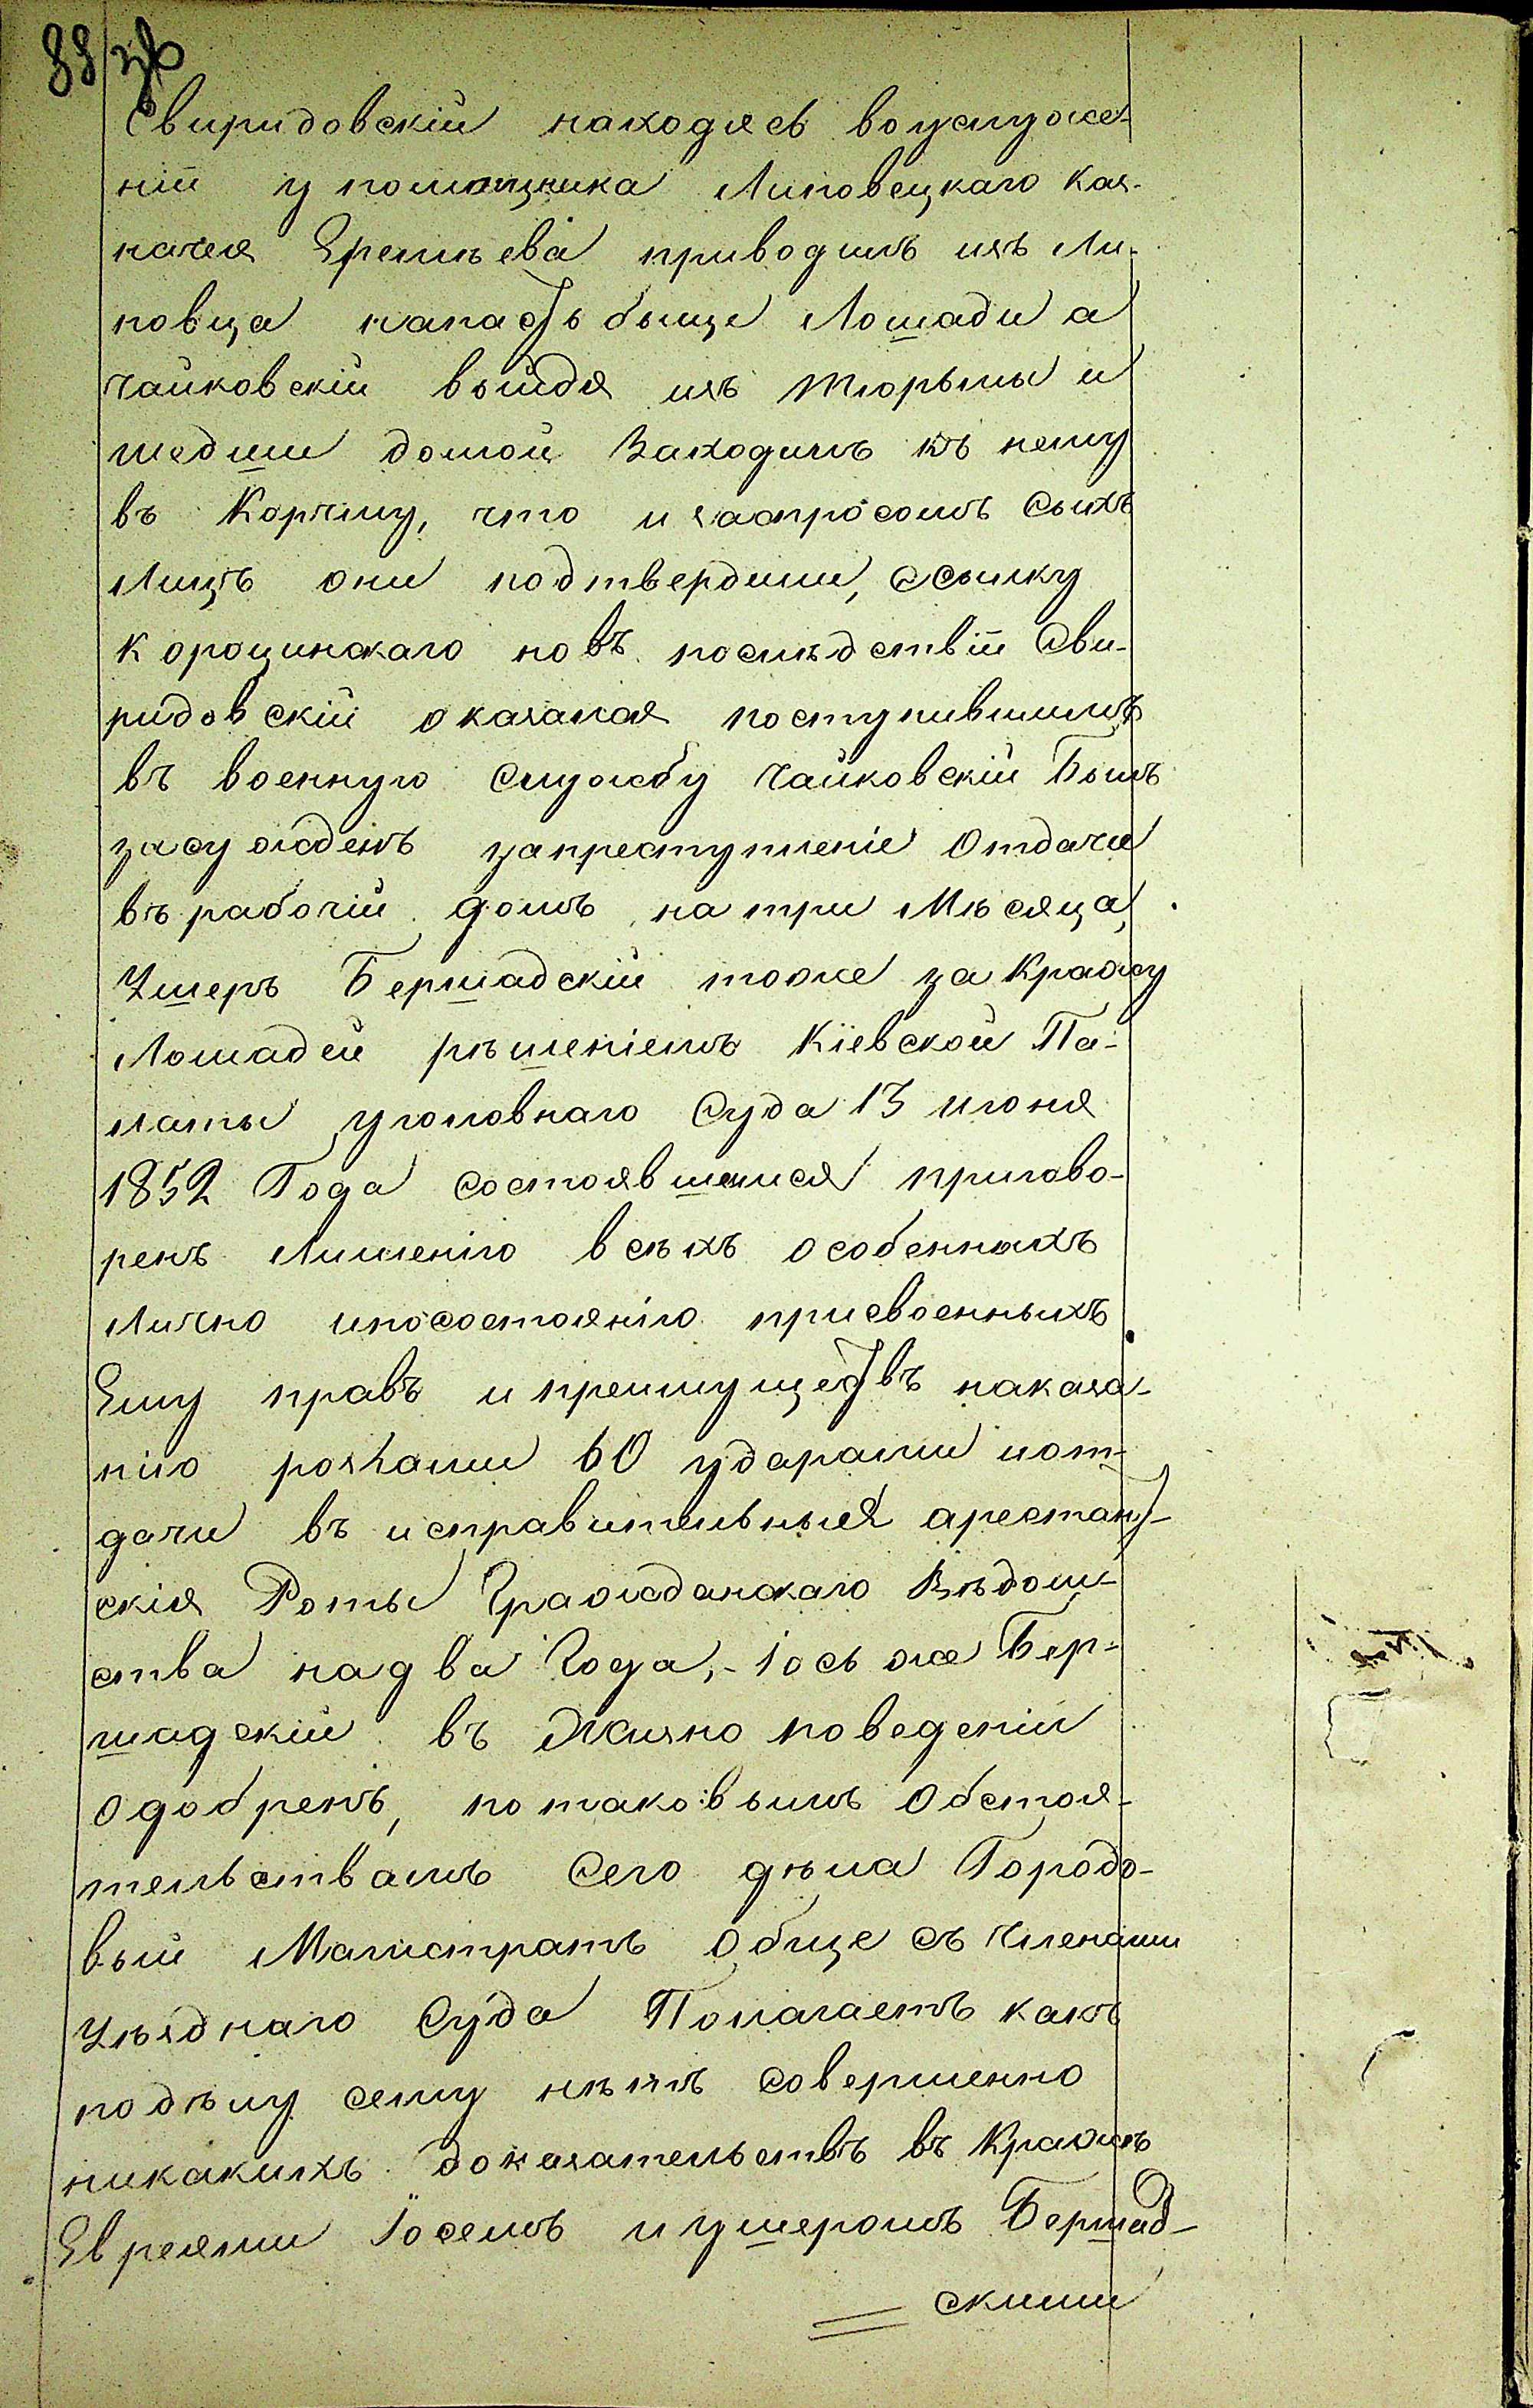 88 зв
Свиридовскій находясь воуслуже-
ніи у помощника Липовецкаго Каз-
начея Яремѣева приводилъ изъ Ли-
повца напастьбище Лошади а
Чайковскій выйдя изъ тюрьмы и
шедши домой Заходилъ къ нему
въ Корчму, что и заспросомъ Сихъ
Лицъ они подтвердили, Ссылку
Корощинскаго новъ послѣдствіи Сви-
ридовскій оказался поступившимъ
въ военную Службу Чайковскій Былъ
засужденъ запреступленіе Отдачи
въ рабочій домъ на три Мѣсяца,
Ушеръ Бершадскій тоже за Кражу
Лошадей рѣшеніемъ Кіевской Па-
латы уголовнаго Суда 13 июня
1852 Года состоявшимся пригово-
ренъ Лишенію всѣхъ особенныхъ
Лично ипосостоянію присвоенныхъ
Ему правъ и преимуществъ наказа-
нію розгами 60 ударами иот-
дачи въ исправительныя арестант-
скія Роты Гражданскаго Вѣдом-
ства надва Года,- Іось же Бер-
шадскій въ поведеніи
одобренъ, потаковымъ Обстоя-
тельствамъ Сего дѣла Городо-
вый Магистратъ Обще съ Членами
Уѣзднаго Суда Полагаетъ какъ
подѣлу сему нѣтъ совершенно
никакихъ доказательствъ въ Кражѣ
Евреями Іосемъ и ушеромъ Бершад-
скими